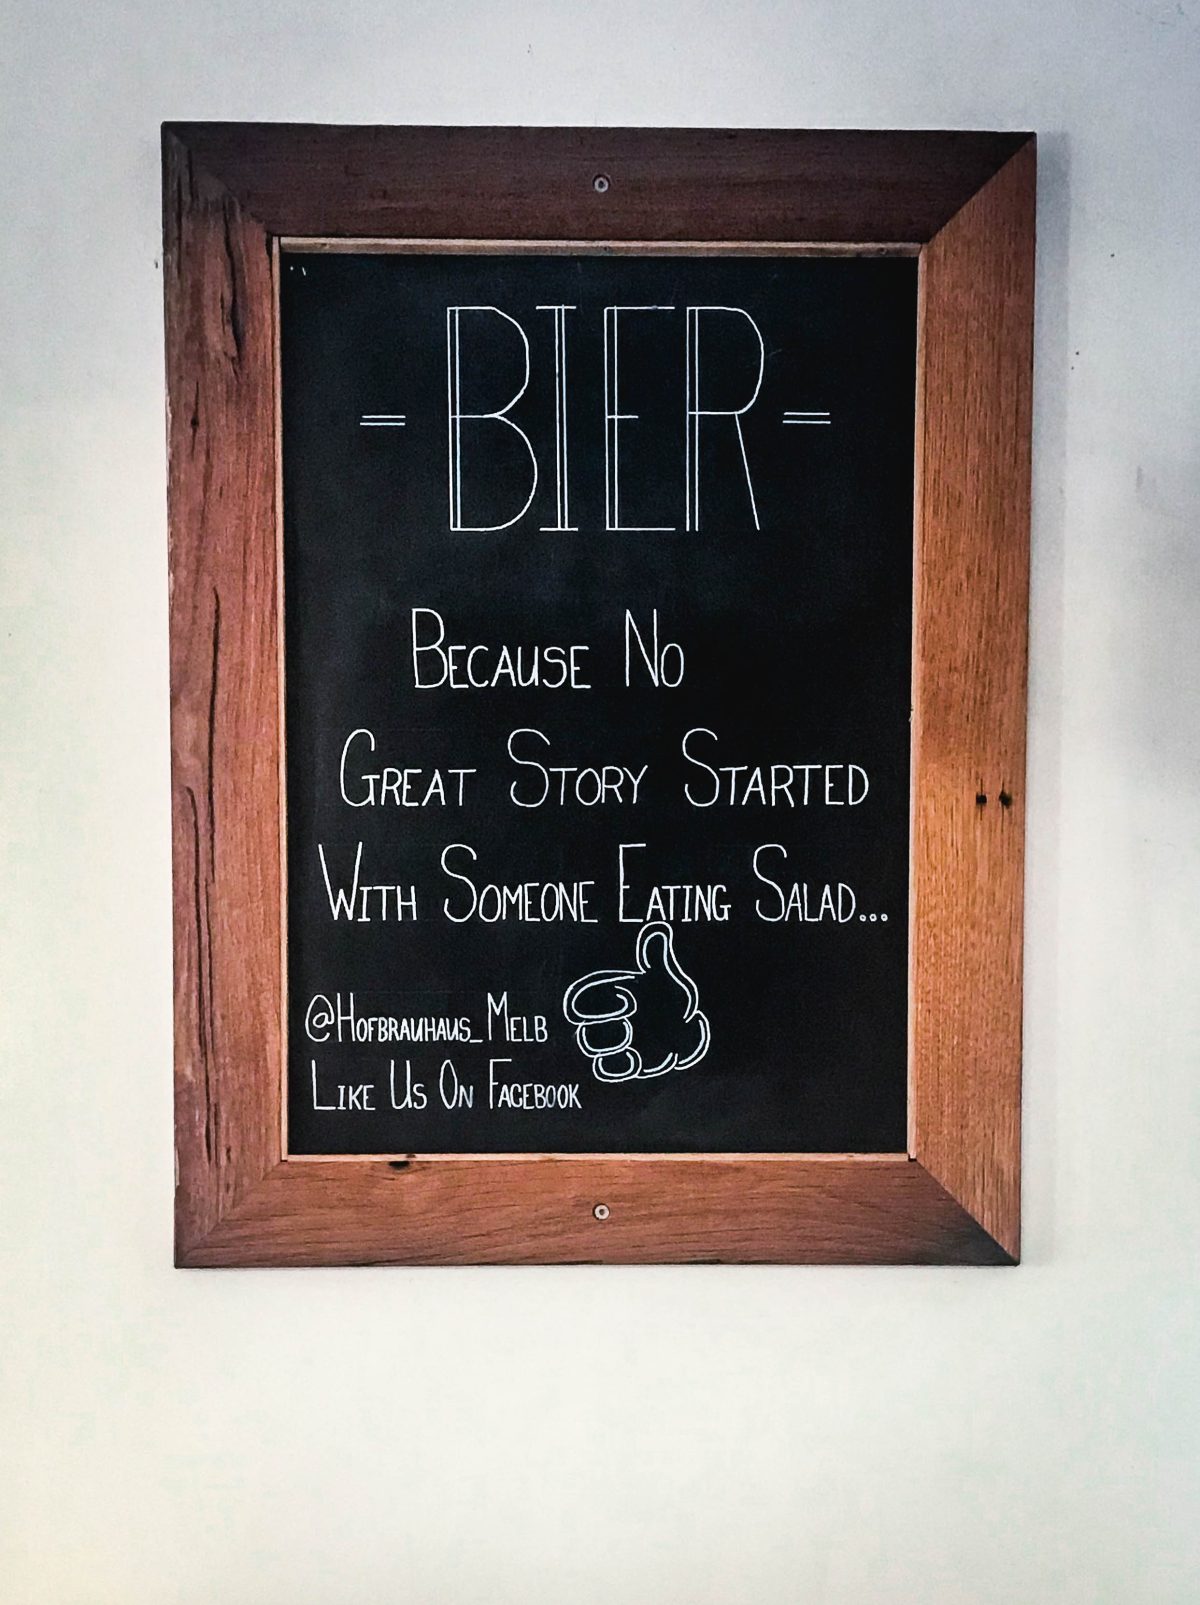 = BIER =
Because No
Great Story Started
With Someone Eating Salad...
@Hofbrauhaus_Melb
Like Us On Facebook